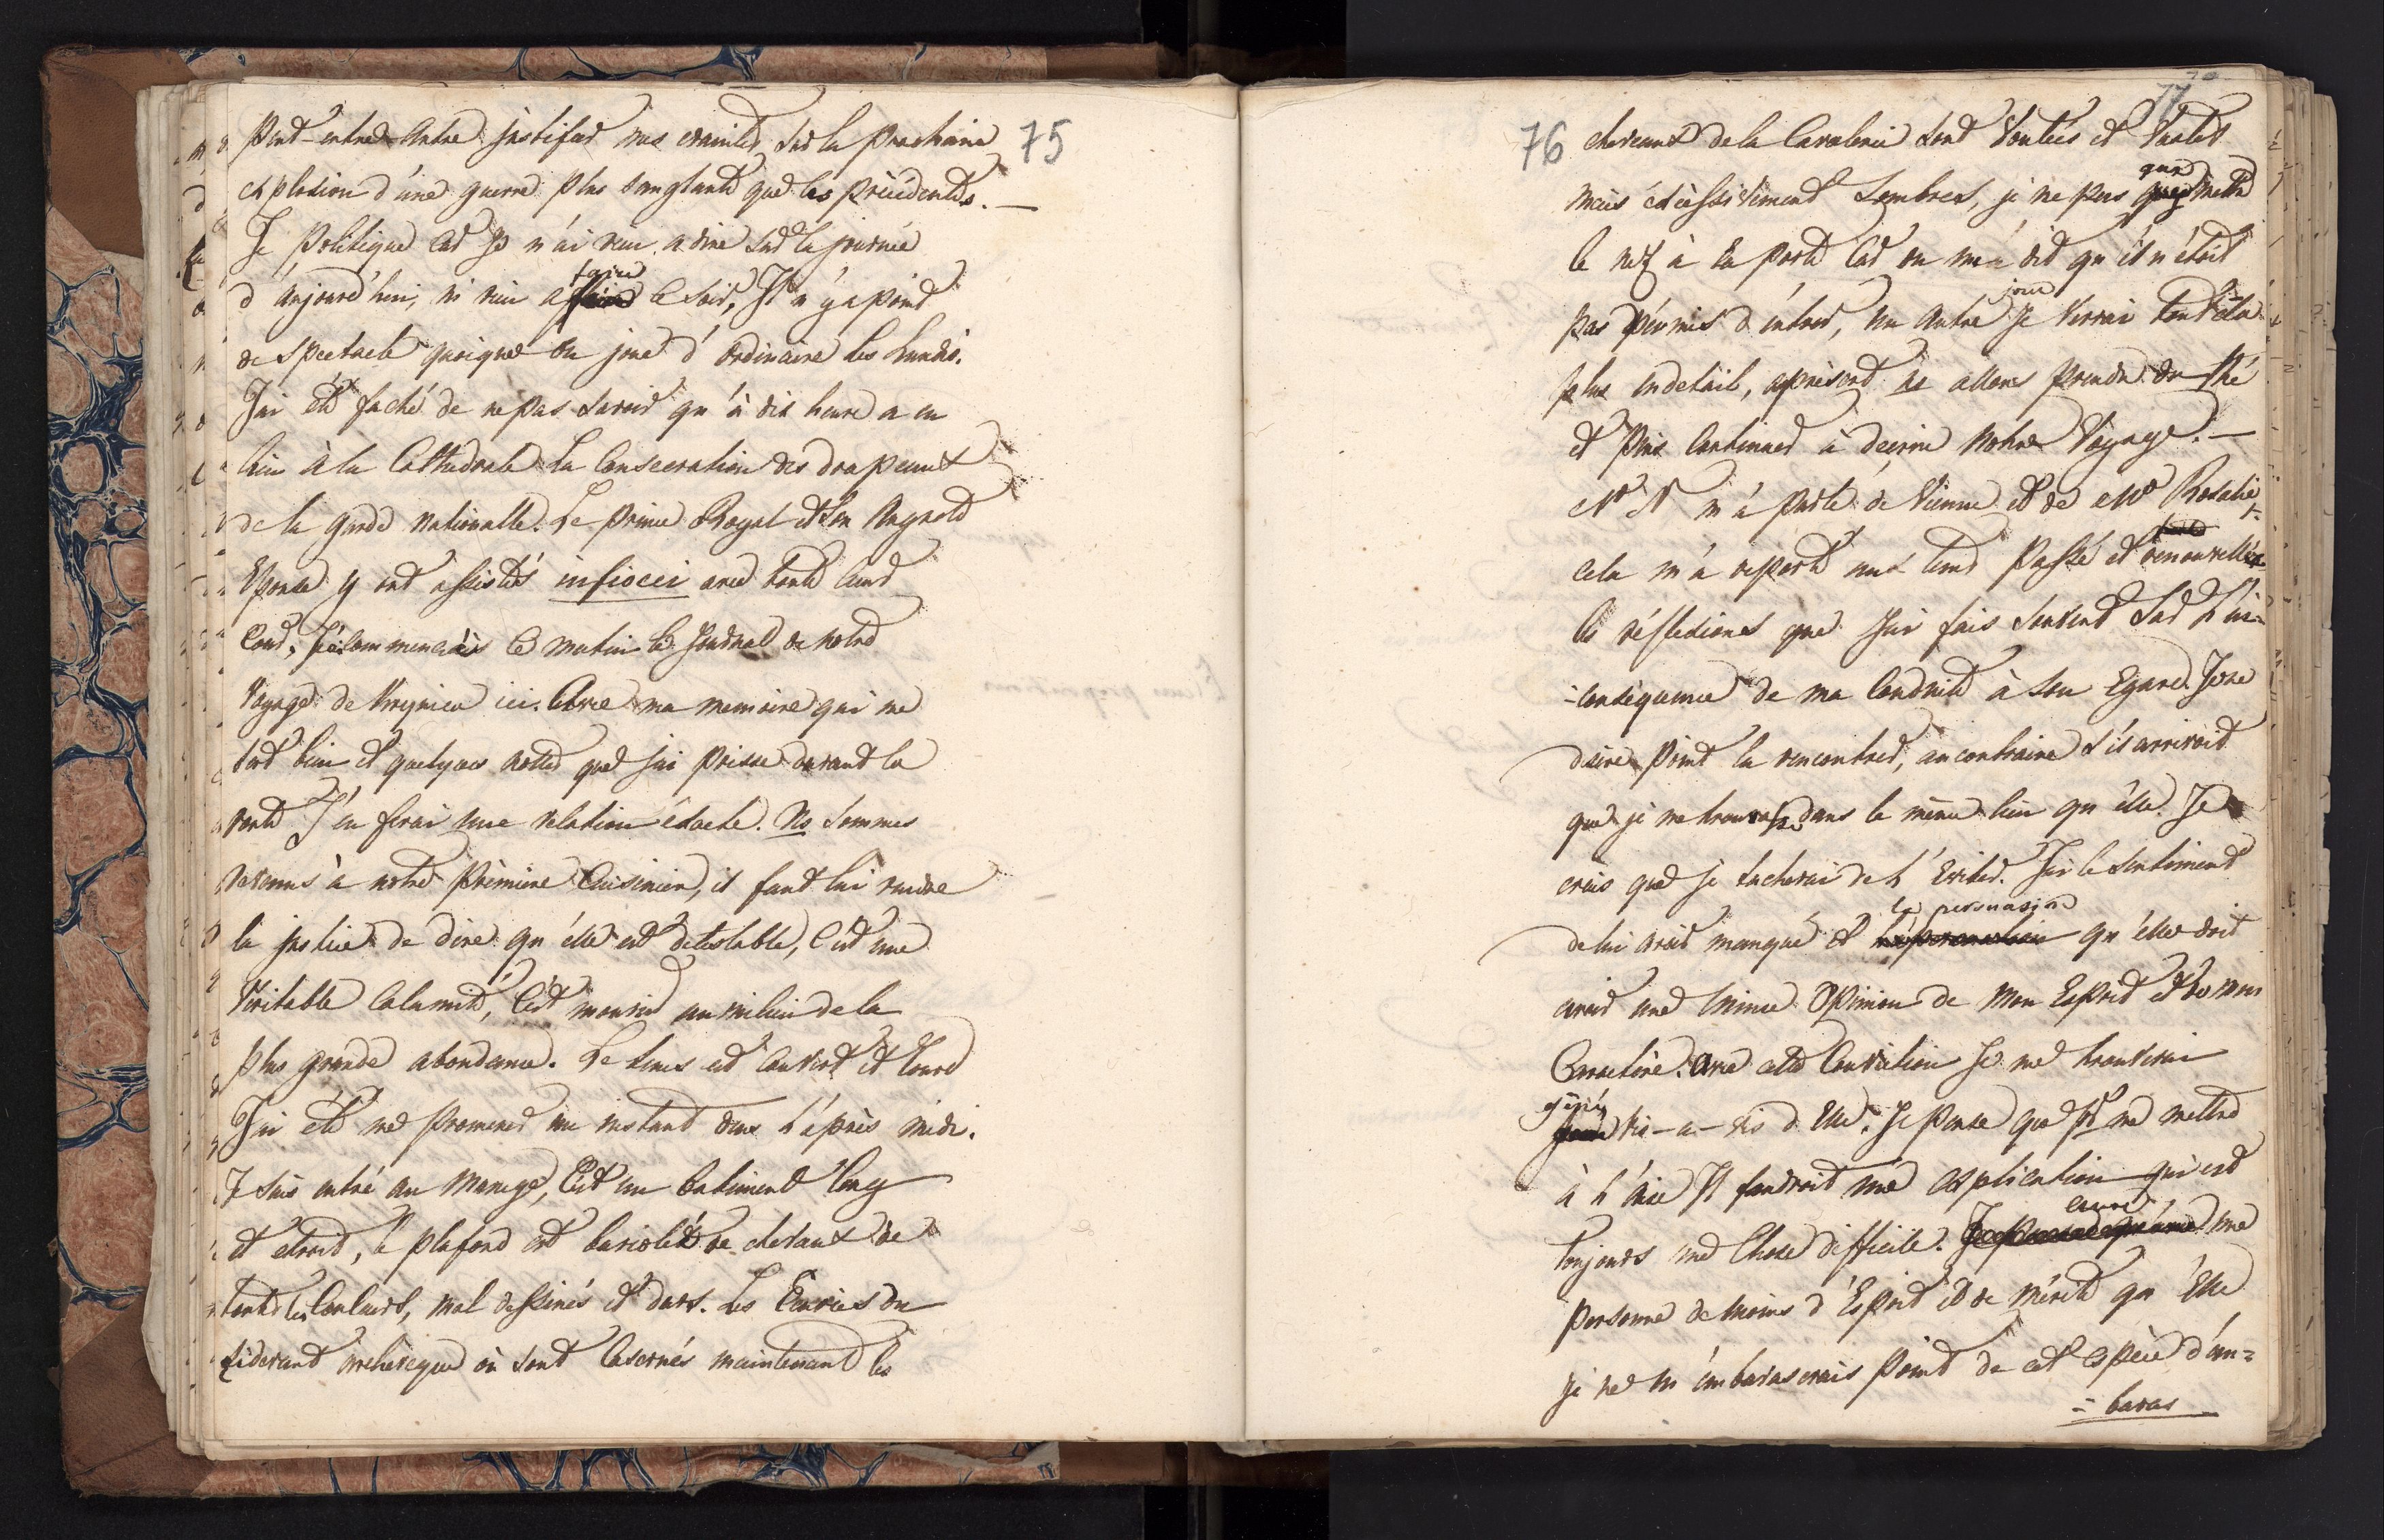 75
Peut-entre Autre justifier nos craintes sur la prochaine
explosion d'une guerre plus sanglante que les précédentes. —
Je politique car je n'ai rien a dire sur la journée
d'aujourd'hui, ni rien a faire ce soir, Il n'y a point
de spectacle quoique on joue d'ordinaire les Lundis.
J'ai été faché de ne pas savoir qu'à dix heure a eu
lieu à la Cathedrale la Consecration des drapeaux
de la garde nationalle. Le Prince Royal et son Auguste
Epouse y ont assistés in fiocci avec toute leur
Cour, J'ai commencé ce matin le Journal de notre
Voyage de ici. Avec ma memoire qui me
sert bien et quelques nottes que j'ai prisse durant la
route J'en ferai une relation éxacte. Ns sommes
revenus à notre première Cuisinier, il faut lui rendre
la justice de dire qu'élle est detestable, C'est une
Véritable Calamité, C'est mourir au milieu de la
plus grande abondance. Le tems est couvert et lourd
J'ai été me promener un instant dans l'après midi.
Je suis entré au Manege, C'est un batiment long
et etroit, le plafond est bariolé de chevaux de
toutes les Couleurs, mal dessinés et durs. Les Ecuries du
cidevant archeveque où sont Casernés maintenant les
77
76
chevaux de la Cavalerie sont Voutées et Vastes
mais éxcéssivement Sombres, je ne pus que mettre
le nez à la porte Car on m'a dit qu'il n'étoit
pas pérmis d'entrer, un Autre jour je Verrai tout cela
plus en detail, apresent ns allons prendre du thé
et puis Continuer à decrire Notre Voyage. —
N N m'a parlé de Vienne et de Mlle Rosalie
Cela m'a reporté aux tems passé et renouvellé
les réflexions que j'ai fais souvent sur l'in-
-conséquence de ma Conduite à son Egard. Je ne
desire point la rencontrer, au contraire s'il arrivoit
que je me trouvasse dans le même lieu qu'elle. Je
crois que je tacherai de l'Eviter. J'ai le sentiment
de lui avoir manqué et la persuasion qu'élle doit
avoir une mince Opinion de Mon Esprit et de mon
Caractère. Avec cette Conviction je me trouverai
géné vis-a-vis d'Elle. Je pense que pr me mettre
à l'aise Il faudroit une explication qui est
toujours une Chose difficile. avec une
personne de moins d'Esprit et de mérite qu'Elle
je ne m'embarasserais point de cet espèce d'em=
=baras